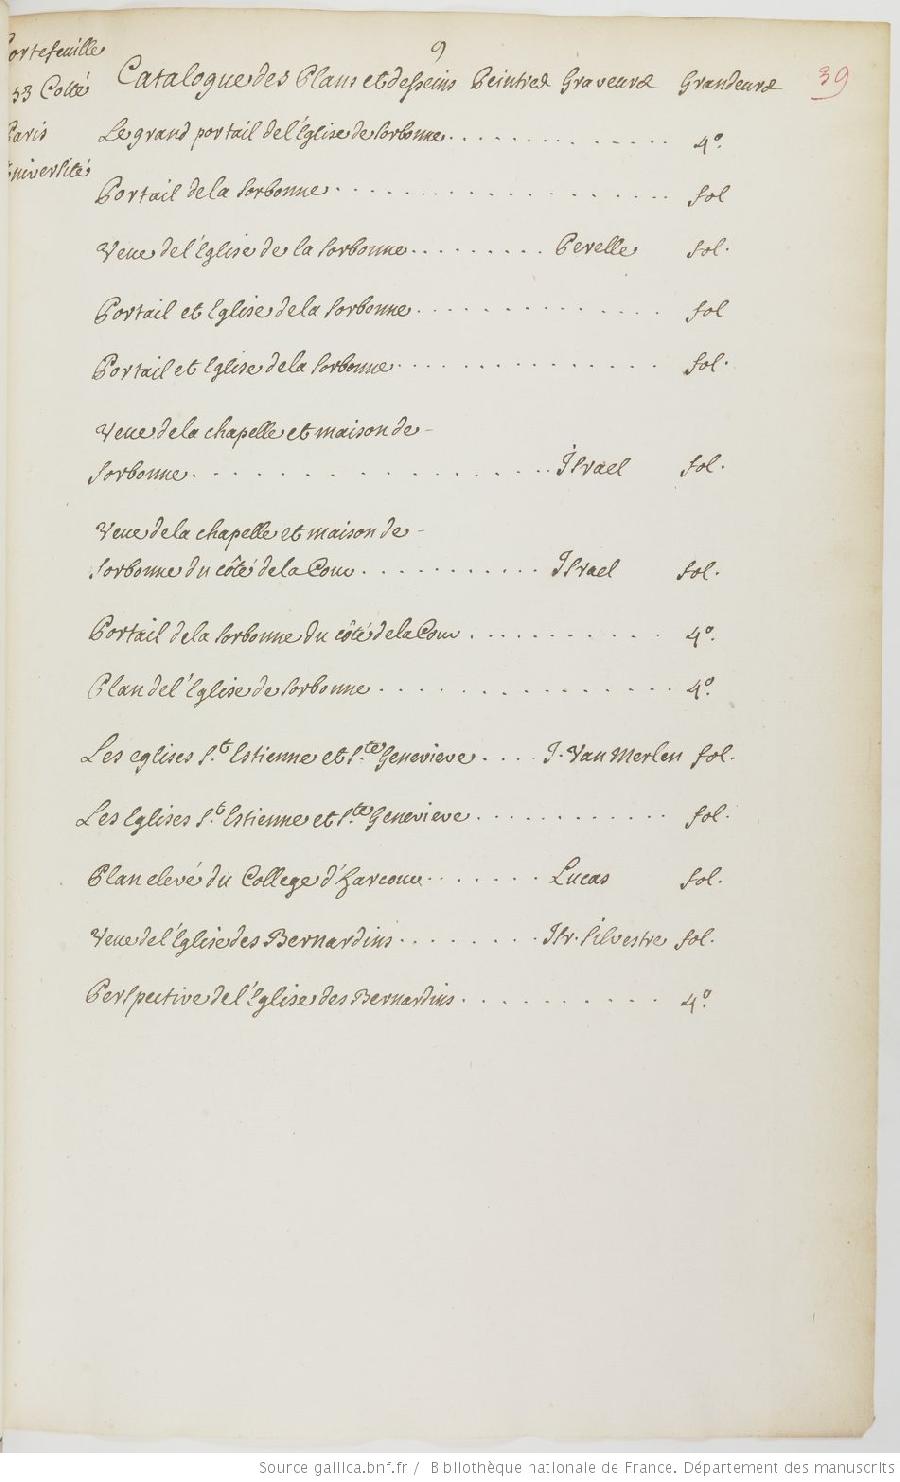 9
Portefeuille
53 Cotté
Paris
Université
Catalogue des Plans et desseins Peintres Graveurs Grandeurs 39
Le grand portail de l'Eglise de Sorbonne . . . . . . . . . . . 4.º
Portail de la Sorbonne . . . . . . . . . . . . . . . . . fol
Veue de l'Eglise de la Sorbonne . . . . . . . . Perelle fol.
Portail et Eglise de la Sorbonne . . . . . . . . . . . . . fol
Portail et Eglise de la Sorbonne . . . . . . . . . . . . . . fol.
Veue de la chapelle et maison de -
Sorbonne . . . . . . . . . . . . . . . . Israel fol.
Veue de la chapelle et maison de -
Sorbonne du côté de la Cour . . . . . . . . . . . Israel fol.
Portail de la Sorbonne du côté de la Cour . . . . . . . . . . 4.º
Plan de l'Eglise de Sorbonne . . . . . . . . . . . . . . . 4.º
Les eglises S.t Estienne et S.te Genevieve . . . . J. Van Merlen fol.
Les Eglises S.t Estienne et S.te Genevieve . . . . . . . . . . . fol.
Plan elevé du College d'harcour . . . . . . . Lucas fol.
Veue de l'Eglise des Bernardins . . . . . . . . Isr. Silvestre fol.
Perspective de l'Eglise des Bernardins . . . . . . . . . . . 4.º
Source gallica.bnf.fr / Bibliothèque nationale de France. Département des manuscrits